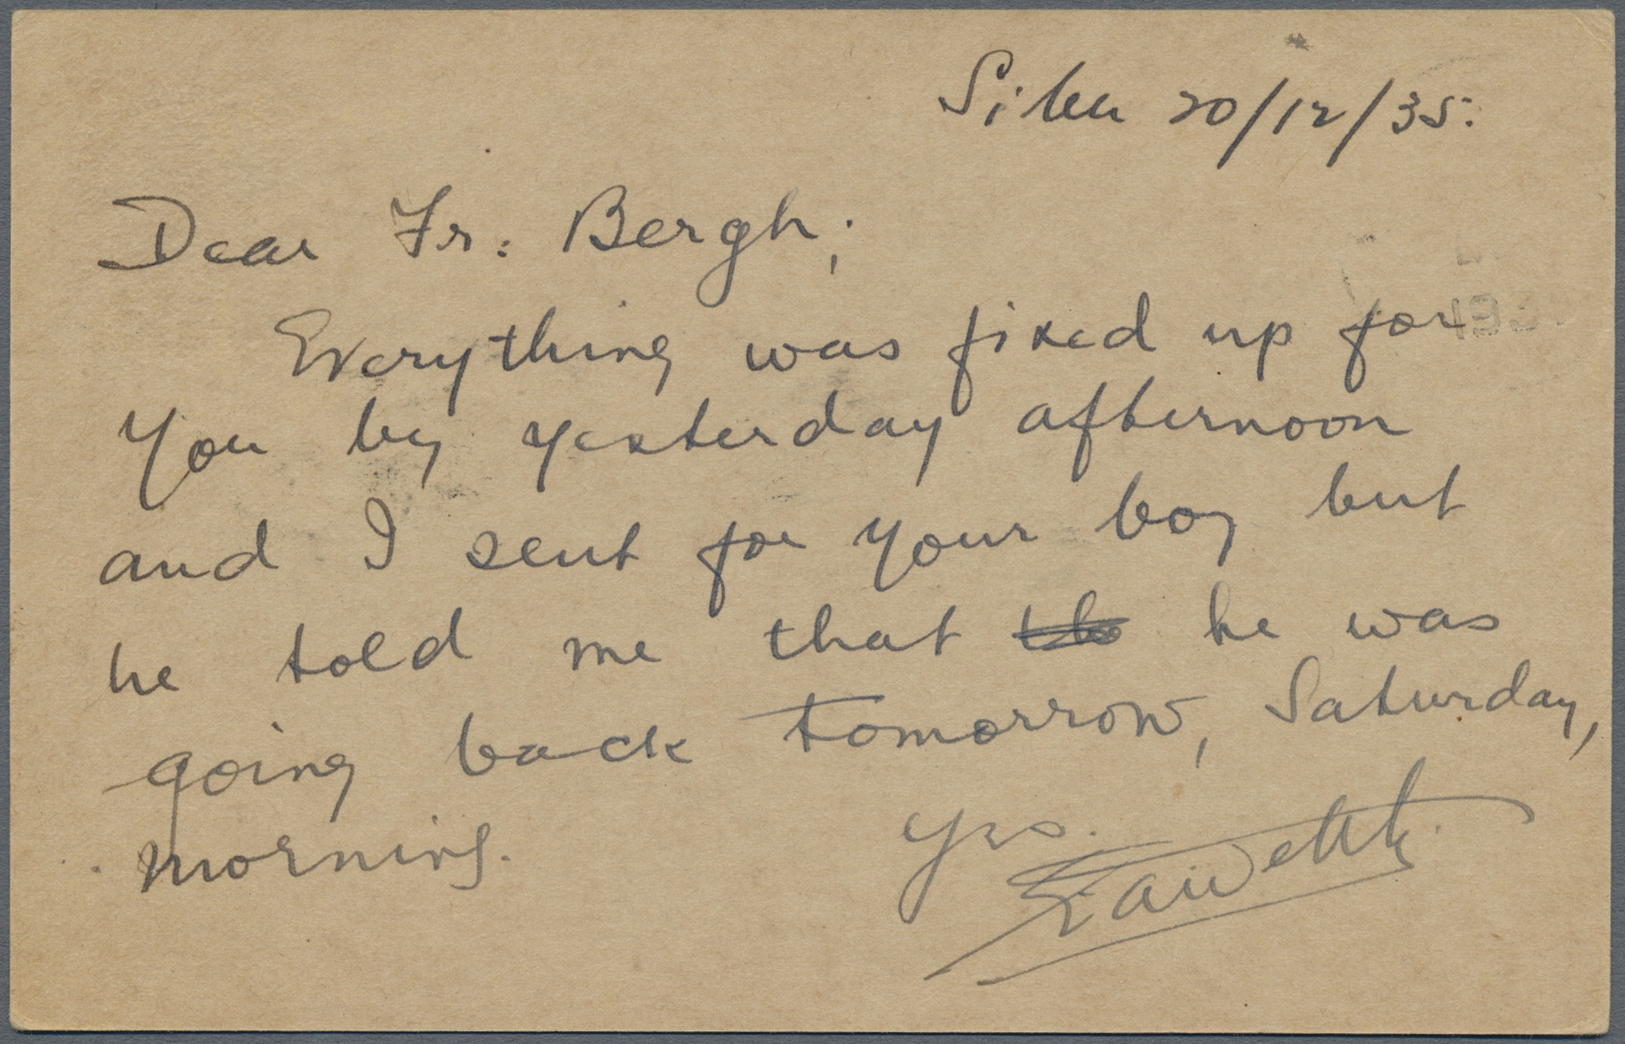 Sibu 20/12/35.
Dear Fr: Bergh;
Everything was fixed up for
you by yesterday afternoon
and I sent for your boy but
he told me that he was
going back tomorrow, Saturday,
morning.
Yrs.